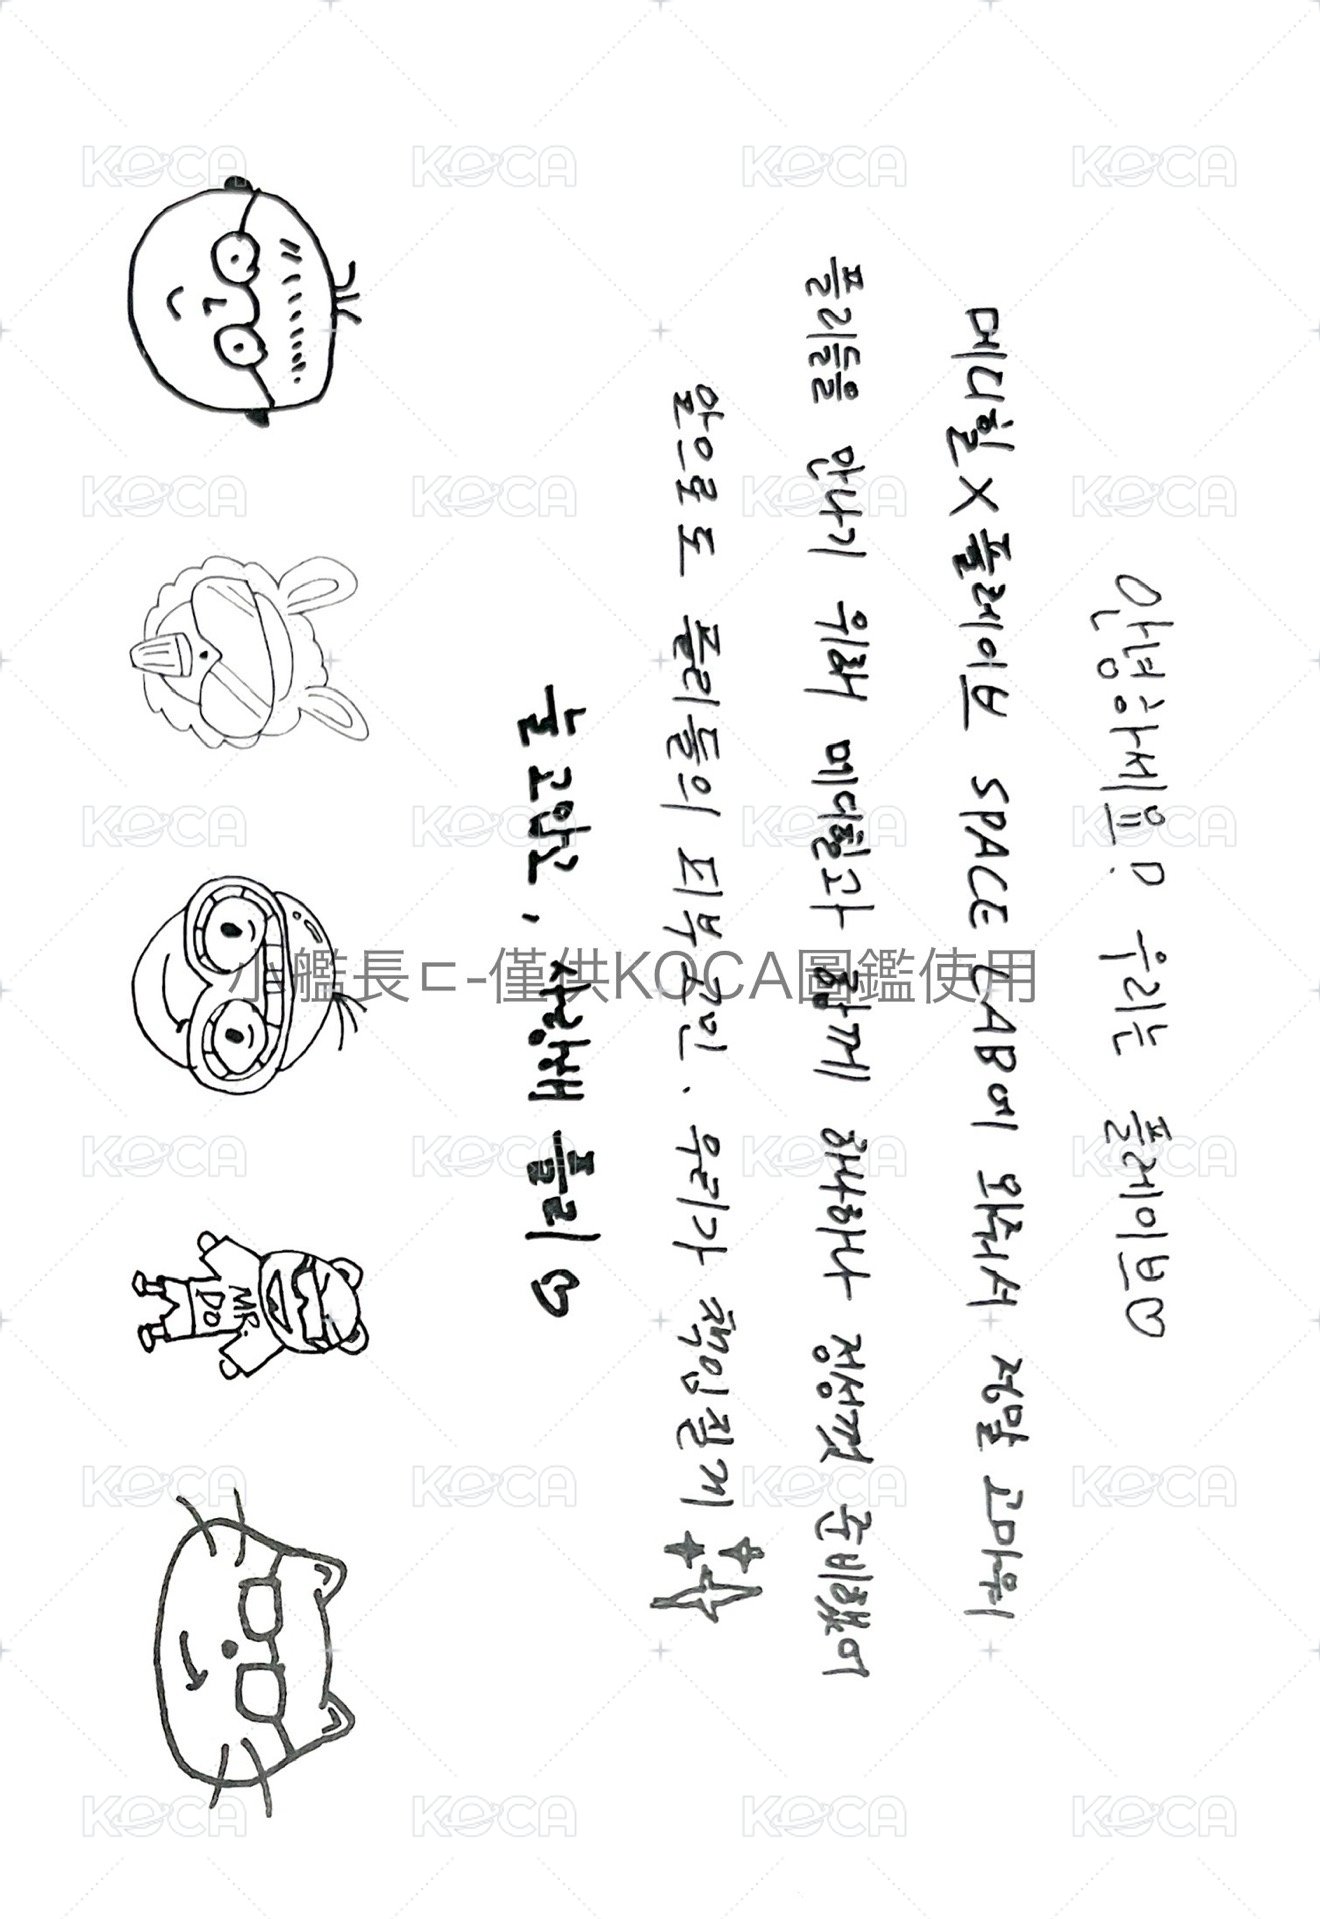 안녕하세요? 우리는 플레이브♡
메디힐X플레이브 SPACE LAB에 와줘서 정말 고마워
플리들을 만나기 위해 메디힐과 함께 하나하나 정성껏 준비했어
앞으로도 플리들의 피부 고민, 우리가 책임질게
늘 고맙고, 사랑해 플리♡
MR.
DO
小艦長ㄷ-僅供KOCA圖鑑使用
KOCA